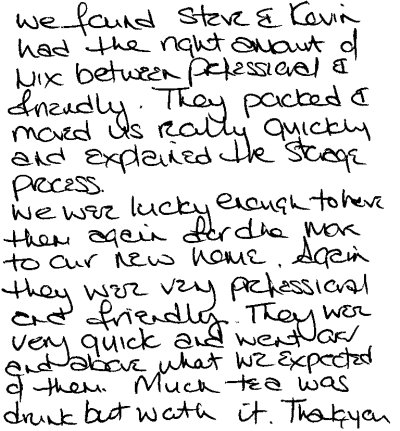 We found Steve & Kevin
had the right amount of
mix between professional &
friendly. They packed &
moved us really quickly
and explained the storage
process.
We were lucky enough to have
them again for the move
to our new home. Again
they were very professional
and friendly. They were
very quick and went over
and above what we expected
of them. Much tea was
drunk but worth it. Thankyou